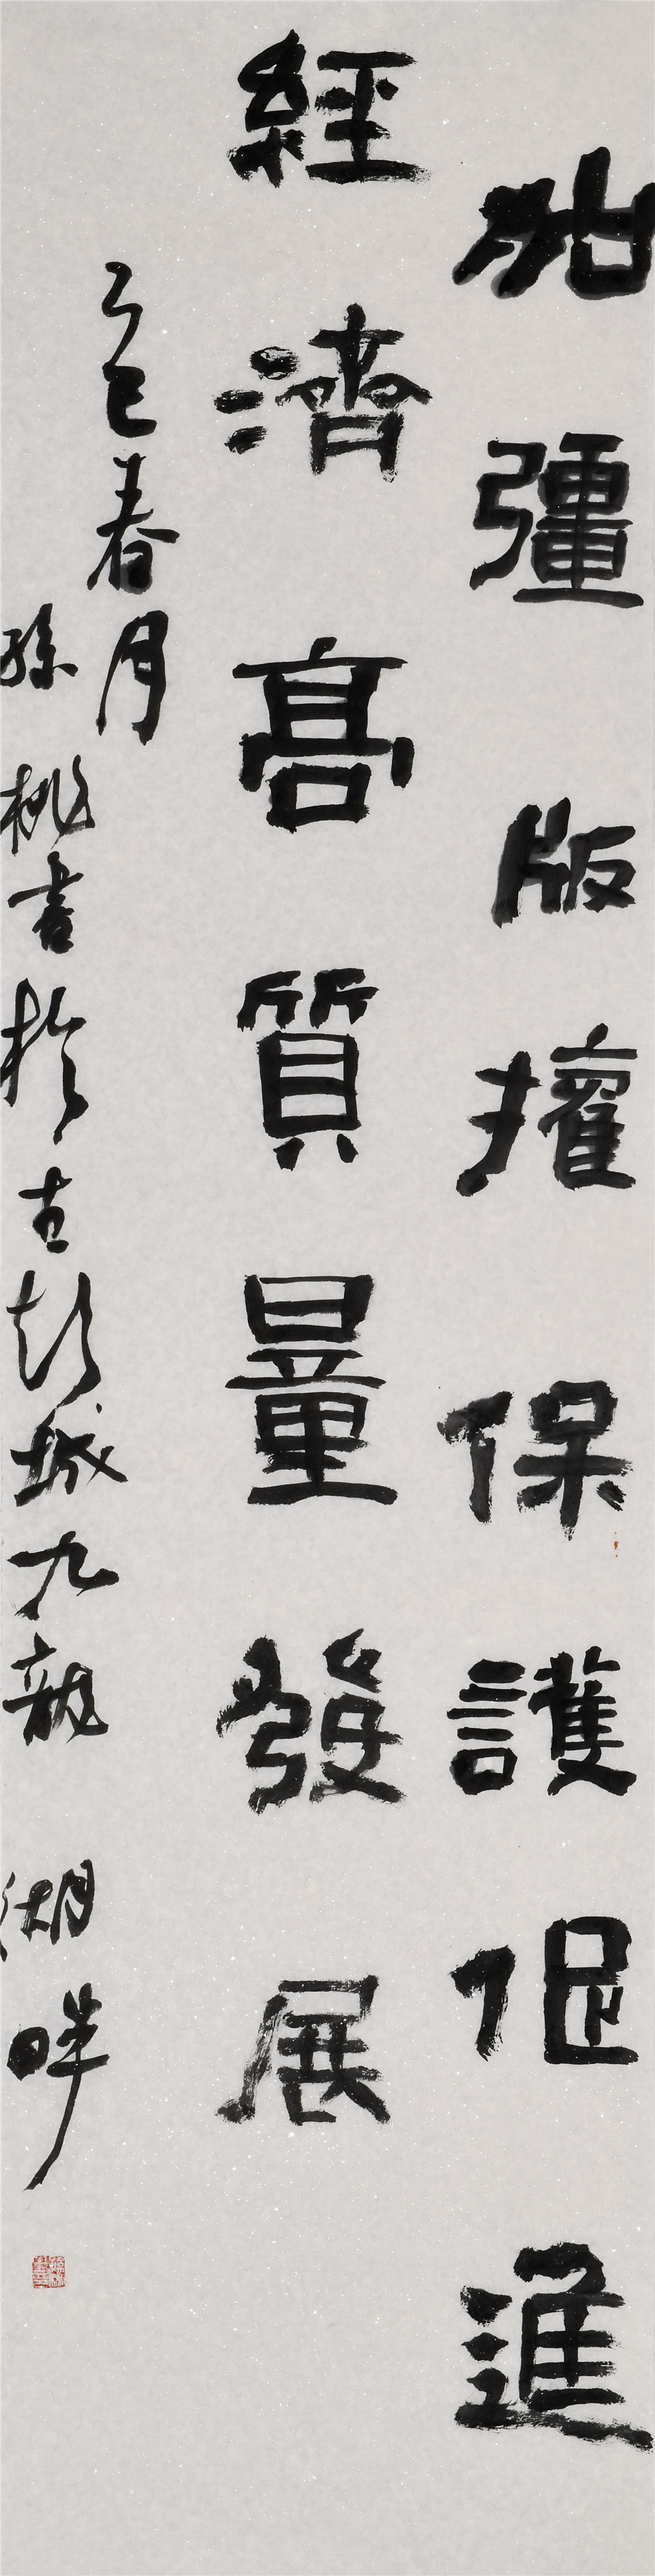 加彊版權保護促進
經濟高質量發展
乙巳春月
孫桃書於古彭城九龍湖畔